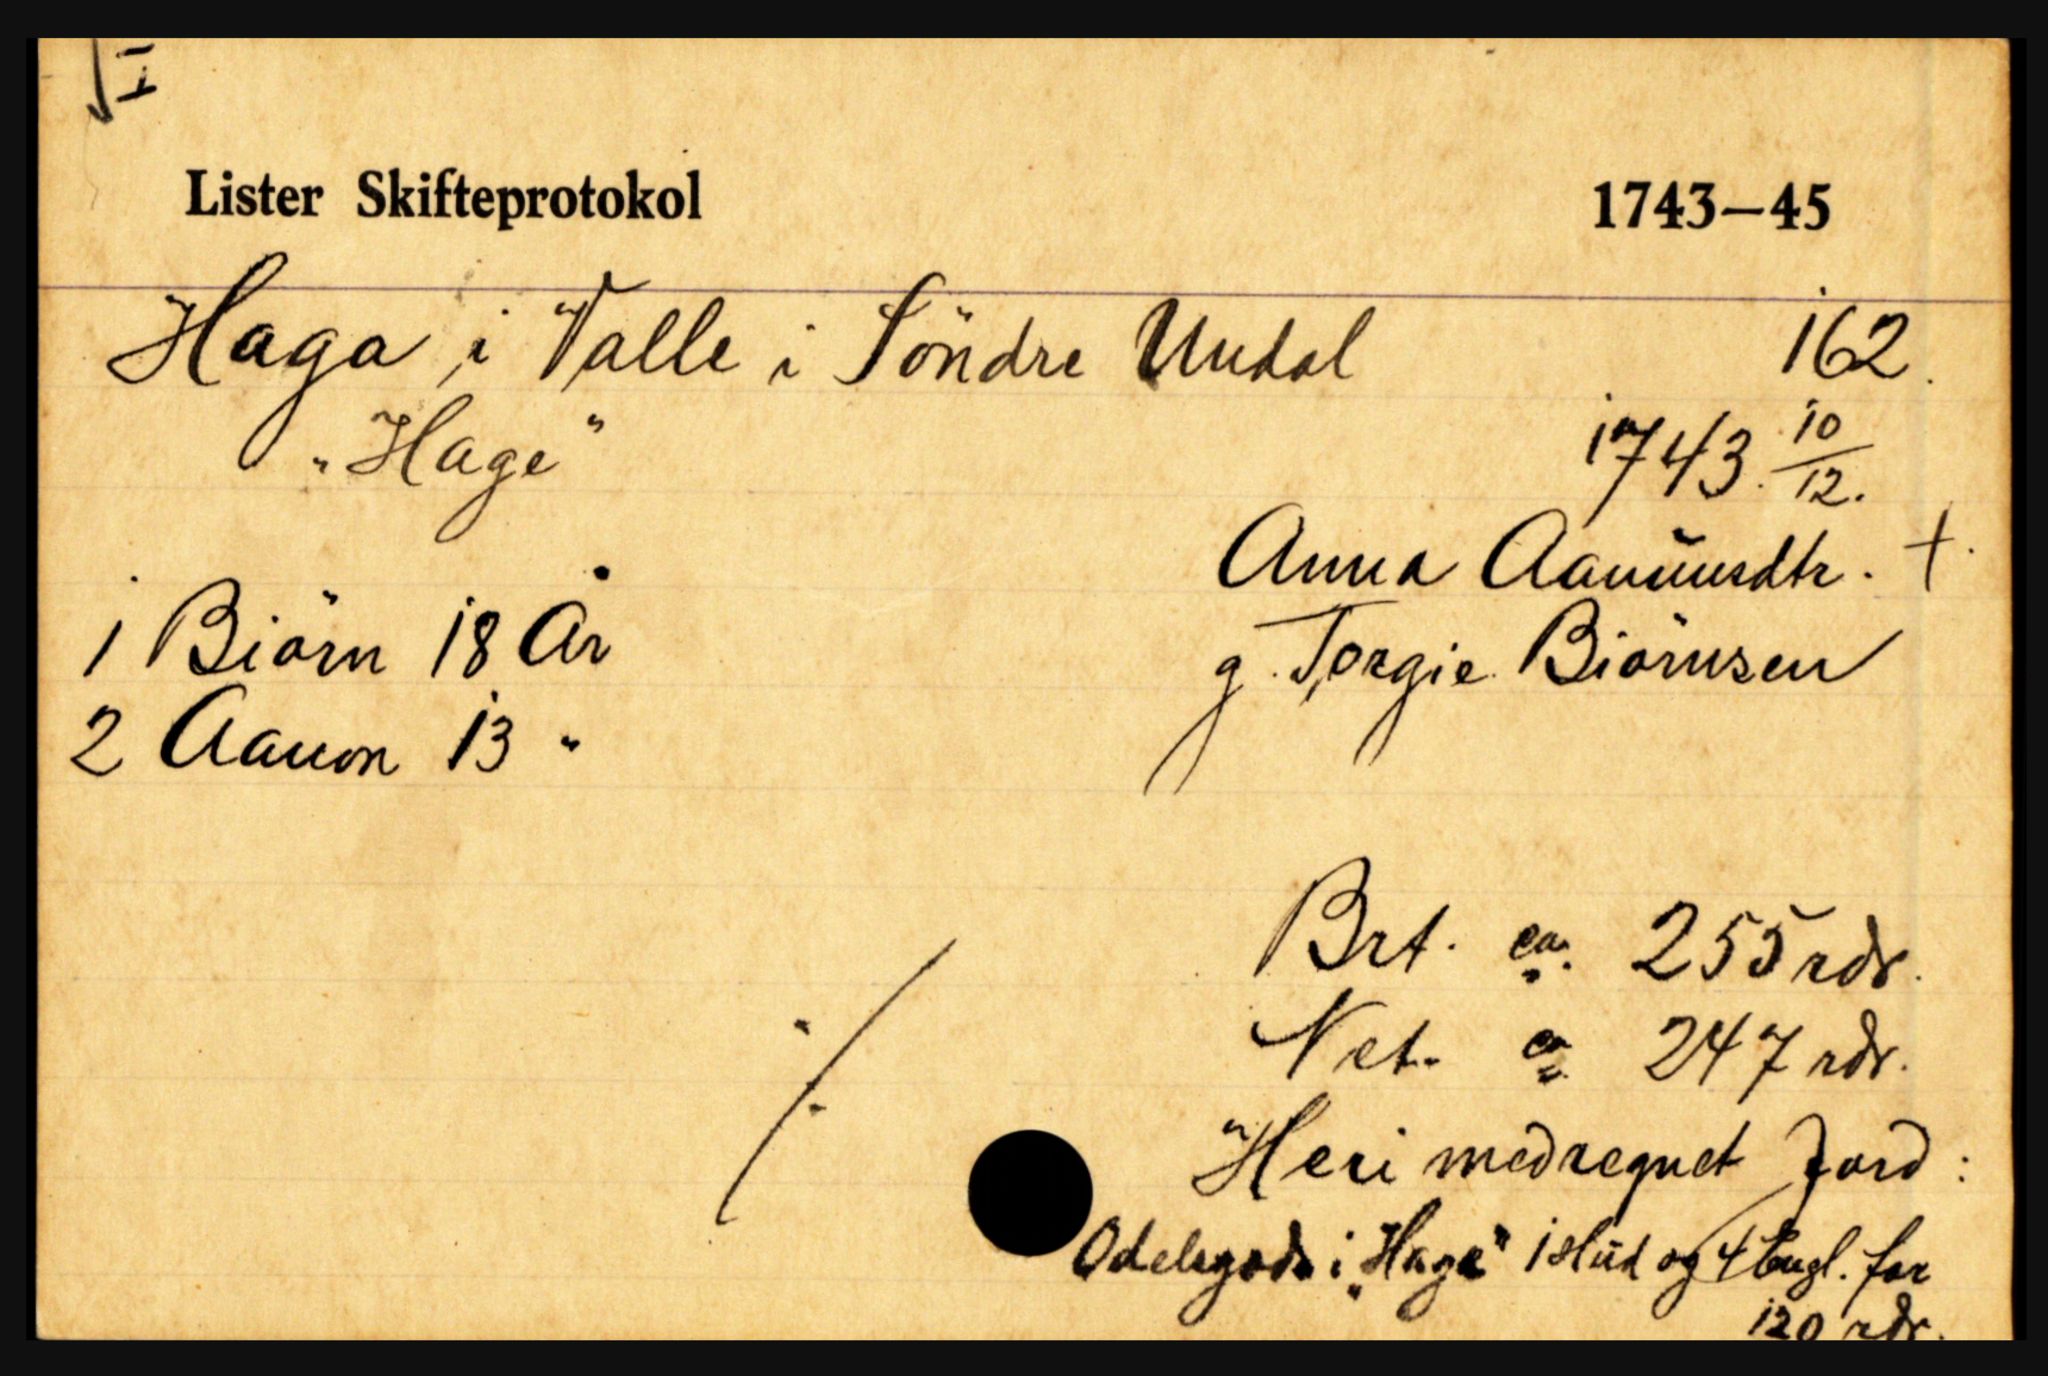 Lister Skifteprotokol 1743–45
Haga i Valle i Söndre Undal 162.
"Hage" 1743. 10/12.
Anna Aamundsdtr. +
1 Biörn 18 År g. Torgie Biörnsen
2 Aamon 13 "
Brt. ca. 255 rdr.
Net. ca 247 rdr.
Heri medregnet Jord:
Odelsgods i "Hage" 1 Hud og 4 Engl. for
120 rdr.